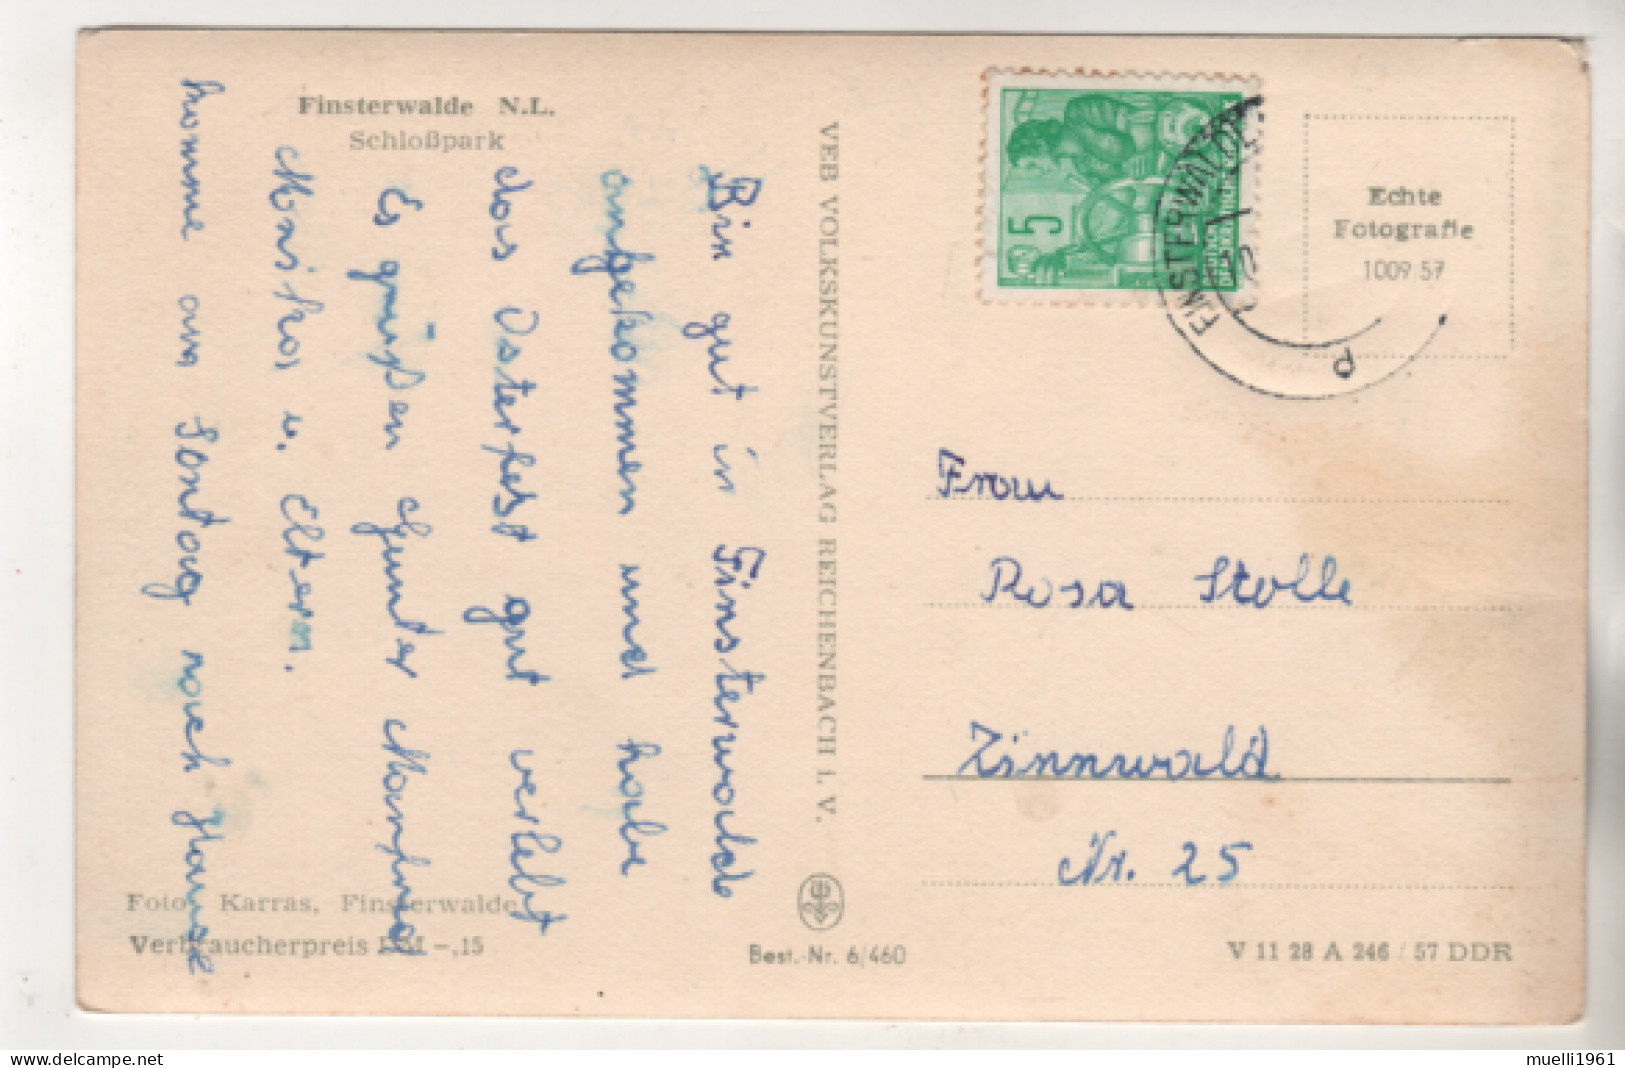 Finsterwalde N.L.
Schloßpark
Bin gut in Finsterwalde
angekommen und habe
das Osterfest gut verlebt
Es grüßen Gunter Manfred
Monika u. Eltern.
komme am Sontag nach Hause
VEB VOLKSKUNSTVERLAG REICHENBACH I. V.
Foto: Karras, Finsterwalde
Verbraucherpreis DM -,15
Best.-Nr. 6/460
5
FINSTERWALDE
d
Echte
Fotografie
1009 57
Frau
Rosa Stolle
Zinnwald
Nr. 25
V 11 28 A 246 / 57 DDR
www.delcampe.net
muelli1961